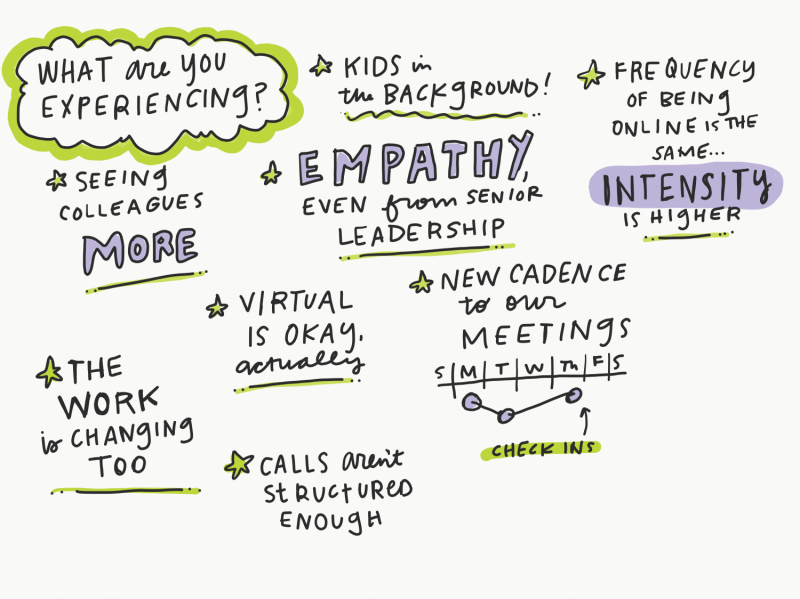 WHAT are you
EXPERIENCING?
KIDS in
the BACKGROUND!
FREQUENCY
OF BEING
ONLINE IS THE
SAME...
INTENSITY
IS HIGHER
SEEING
COLLEAGUES
MORE
EMPATHY,
EVEN from SENIOR
LEADERSHIP
VIRTUAL
IS OKAY,
actually
NEW CADENCE
to our
MEETINGS
S M T W Th F S
CHECK INS
THE
WORK
is CHANGING
TOO
CALLS aren't
STRUCTURED
ENOUGH